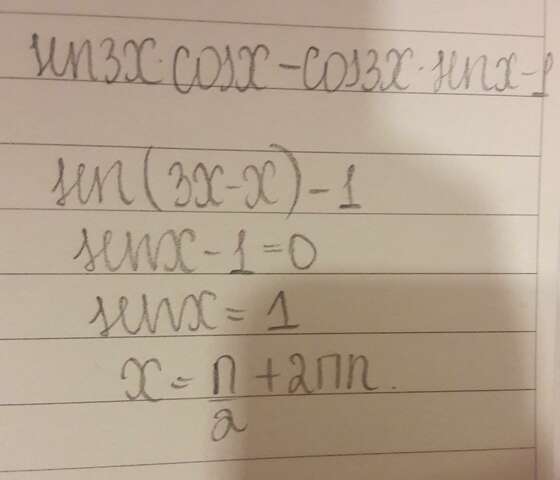 sen3x·cosx-cos3x·senx-1
sen(3x-x)-1
senx-1=0
senx=1
x=π/2+2πn.